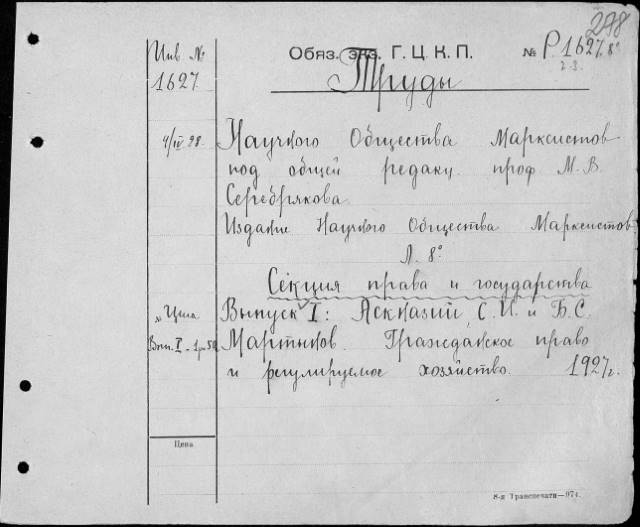 298
Инв. №
1627
Обяз. экз. Г. Ц. К. П.
№ Р.1627. 8°
Труды
4/IV 28.
Научного Общества Марксистов
под общей редакц. проф М. В.
Серебрякова.
Издание Научного Общества Марксистов
Л. 8°
Секция права и государства
Цена
Вып. I - 1р 50
Выпуск I: Аскназий, С. И. и Б. С.
Мартынов. Гражданское право
и регулируемое хозяйство. 1927 г.
Цена
8-я Транспечати—974.